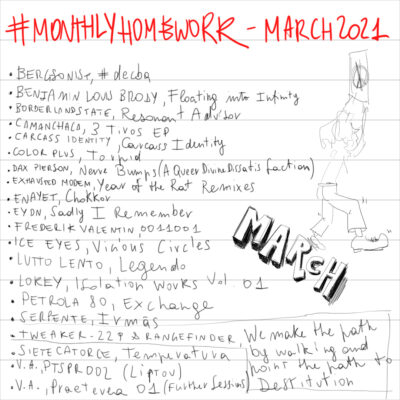 #MONTHLYHOMEWORK - MARCH 2021
• BERGSONIST, #decba
• BENJAMIN LOUIS BRODY, Floating into Infinity
• BORDERLANDSTATE, Resonant Advisor
• COMANCHACO, 3 Tiros EP
• CARCASS IDENTITY, Carcass Identity
• COLOR PLUS, Torpid
• DAX PIERSON, Nerve Bumps (A Queer Divine Dissatisfaction)
• EXHAUSTED MODEM, Year of the Rat Remixes
• ENAYET, Chokkor
• EYDN, Sadly I Remember
• FREDERIK VALENTIN, 0011001
• ICE EYES, Vicious Circles
• LUTTO LENTO, Legendo
• LOKEY, Isolation Works Vol. 01
• PETROLA 80, Exchange
• SERPENTE, Irmãs
• TWEAKER-229 & RANGEFINDER, We make the path by walking and point the path to Destitution
• SIETE CATORCE, Temperatura
• V.A., PTSPR002 (LIPTOV)
• V.A., Praeterea 01 (Further Sessions)
MARCH